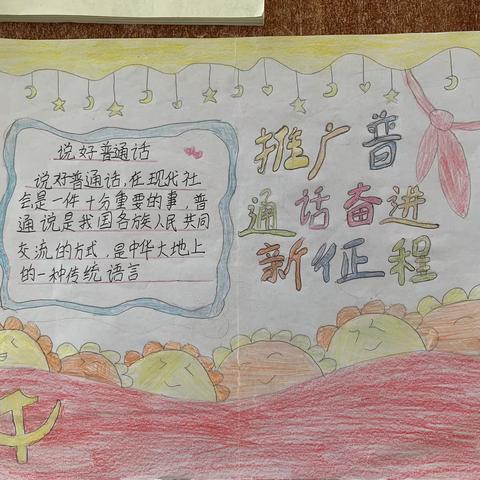 说好普通话
说好普通话,在现代社
会是一件十分重要的事,普
通说是我国各族人民共同
交流的方式,是中华大地上
的一种传统语言
推广普
通话奋进
新征程